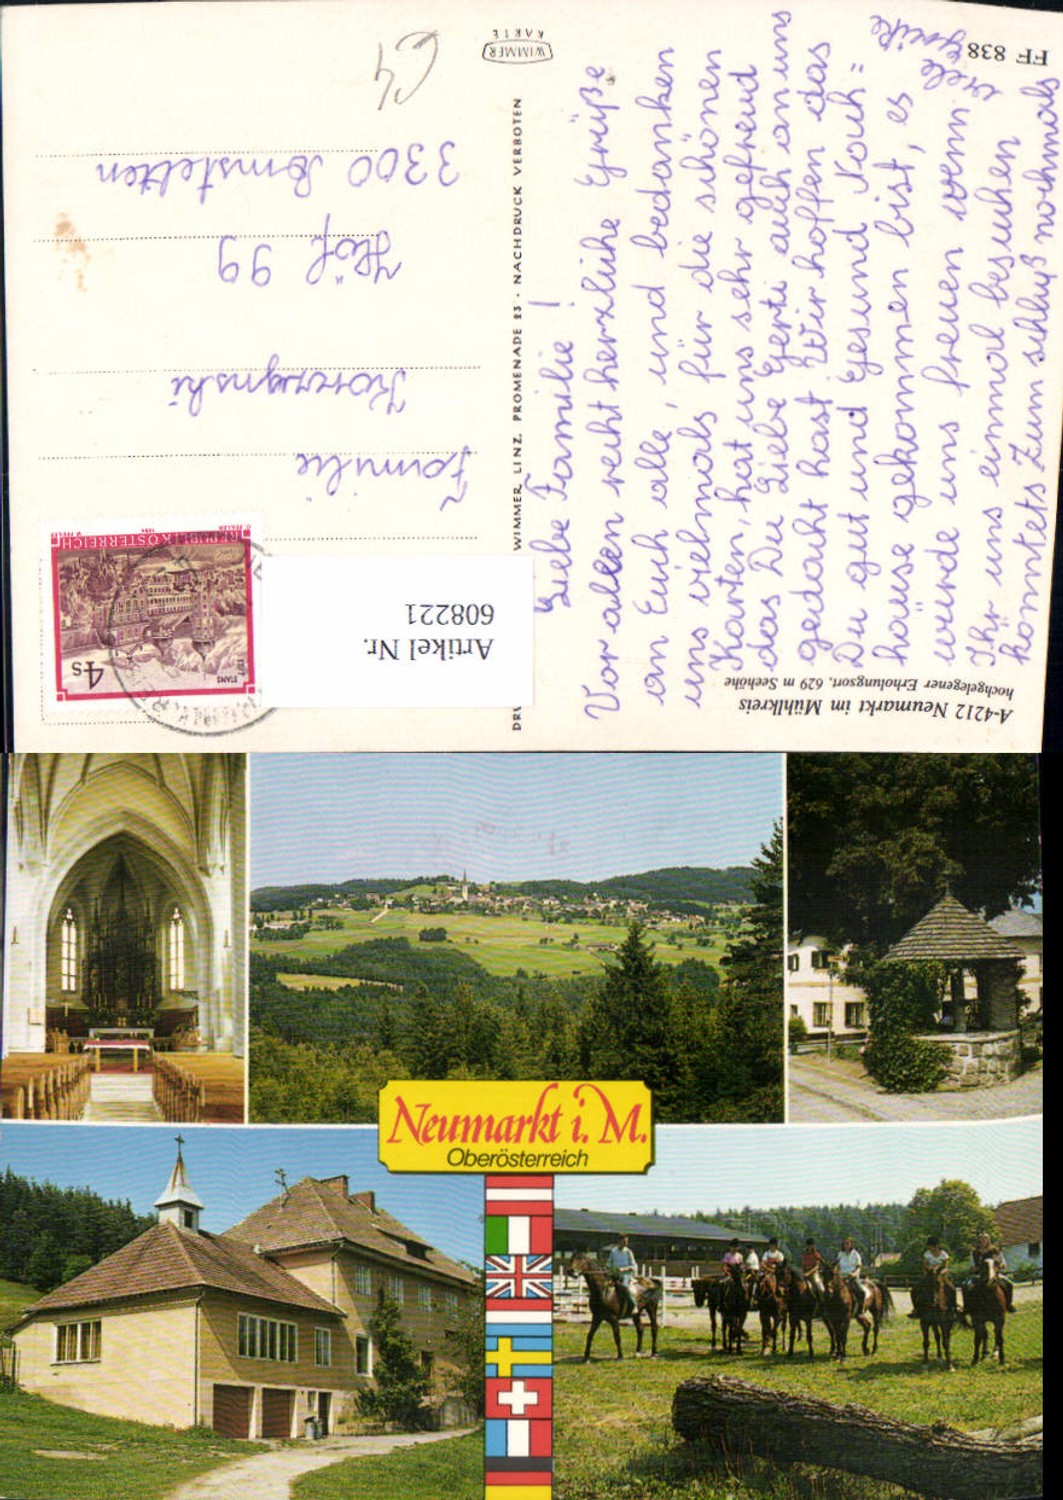 FF 838
WIMMER
KARTE
A-4212 Neumarkt im Mühlkreis
hochgelegener Erholungsort, 629 m Seehöhe
WIMMER, LINZ, PROMENADE 23 · NACHDRUCK VERBOTEN
Artikel Nr.
608221
REPUBLIK ÖSTERREICH
4s
STAMS
Familie
Höf 99
3300 Amstetten
Liebe Familie!
Vor allen recht herzliche Grüße
an Euch alle, und bedanken
uns vielmals für die schönen
Karten, hat uns sehr gefreud
das Du Liebe Gerti auch an uns
gedacht hast. Wir hoffen das
Du gut und Gesund Nach=
hause gekommen bist, es
würde uns freuen wenn
Ihr uns einmal besuchen
kommtets Zum schluß nochmals
viele
Grüße
Neumarkt i. M.
Oberösterreich